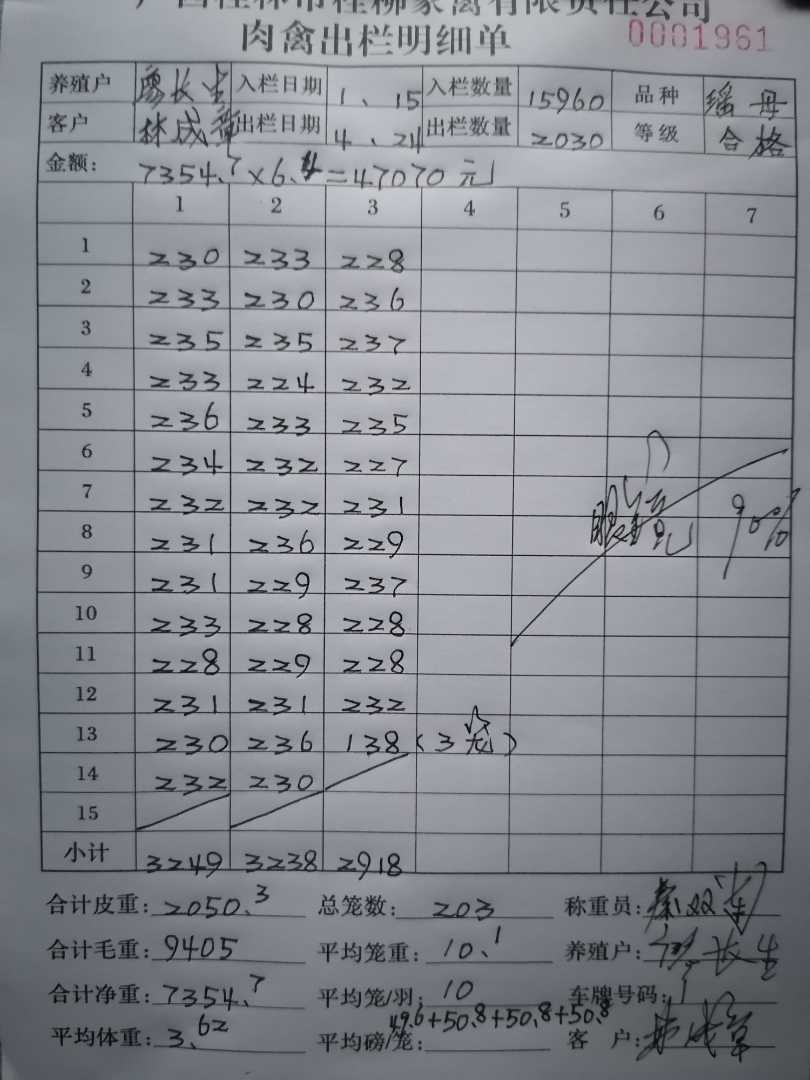 广西桂林市桂柳家禽有限责任公司
肉禽出栏明细单 0001961
养殖户 廖长生 入栏日期 1、15 入栏数量 15960 品种 瑶母
客户 林成章 出栏日期 4、24 出栏数量 2030 等级 合格
金额: 7354.7×6.4=47070元
1 2 3 4 5 6 7
1 230 233 228
2 233 230 236
3 235 235 237
4 233 224 232
5 236 233 235
6 234 232 227
7 232 232 231
8 231 236 229
9 231 229 237
10 233 228 228
11 228 229 228
12 231 231 232
13 230 236 138 (3笼)
14 232 230
15
90%
小计 3249 3238 2918
合计皮重: 2050.3 总笼数: 203 称重员:
合计毛重: 9405 平均笼重: 10.1 养殖户: 廖长生
合计净重: 7354.7 平均笼/羽: 10 车牌号码:
平均体重: 3.62 平均磅/笼: 49.6+50.8+50.8+50.8 客户: 林成章